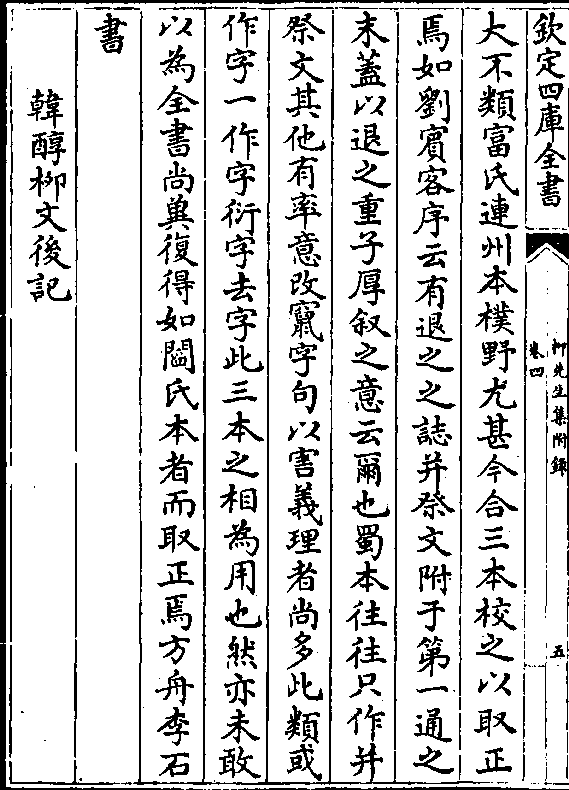 欽定四庫全書
柳先生集附錄
卷四
五
大不類富氏連州本樸野尤甚今合三本校之以取正
焉如劉賓客序云有退之之誌并祭文附于第一通之
末蓋以退之重子厚叙之意云爾也蜀本往往只作并
祭文其他有率意改竄字句以害義理者尚多此類或
作字一作字衍字去字此三本之相為用也然亦未敢
以為全書尚兾復得如閻氏本者而取正焉方舟李石
書
韓醇柳文後記